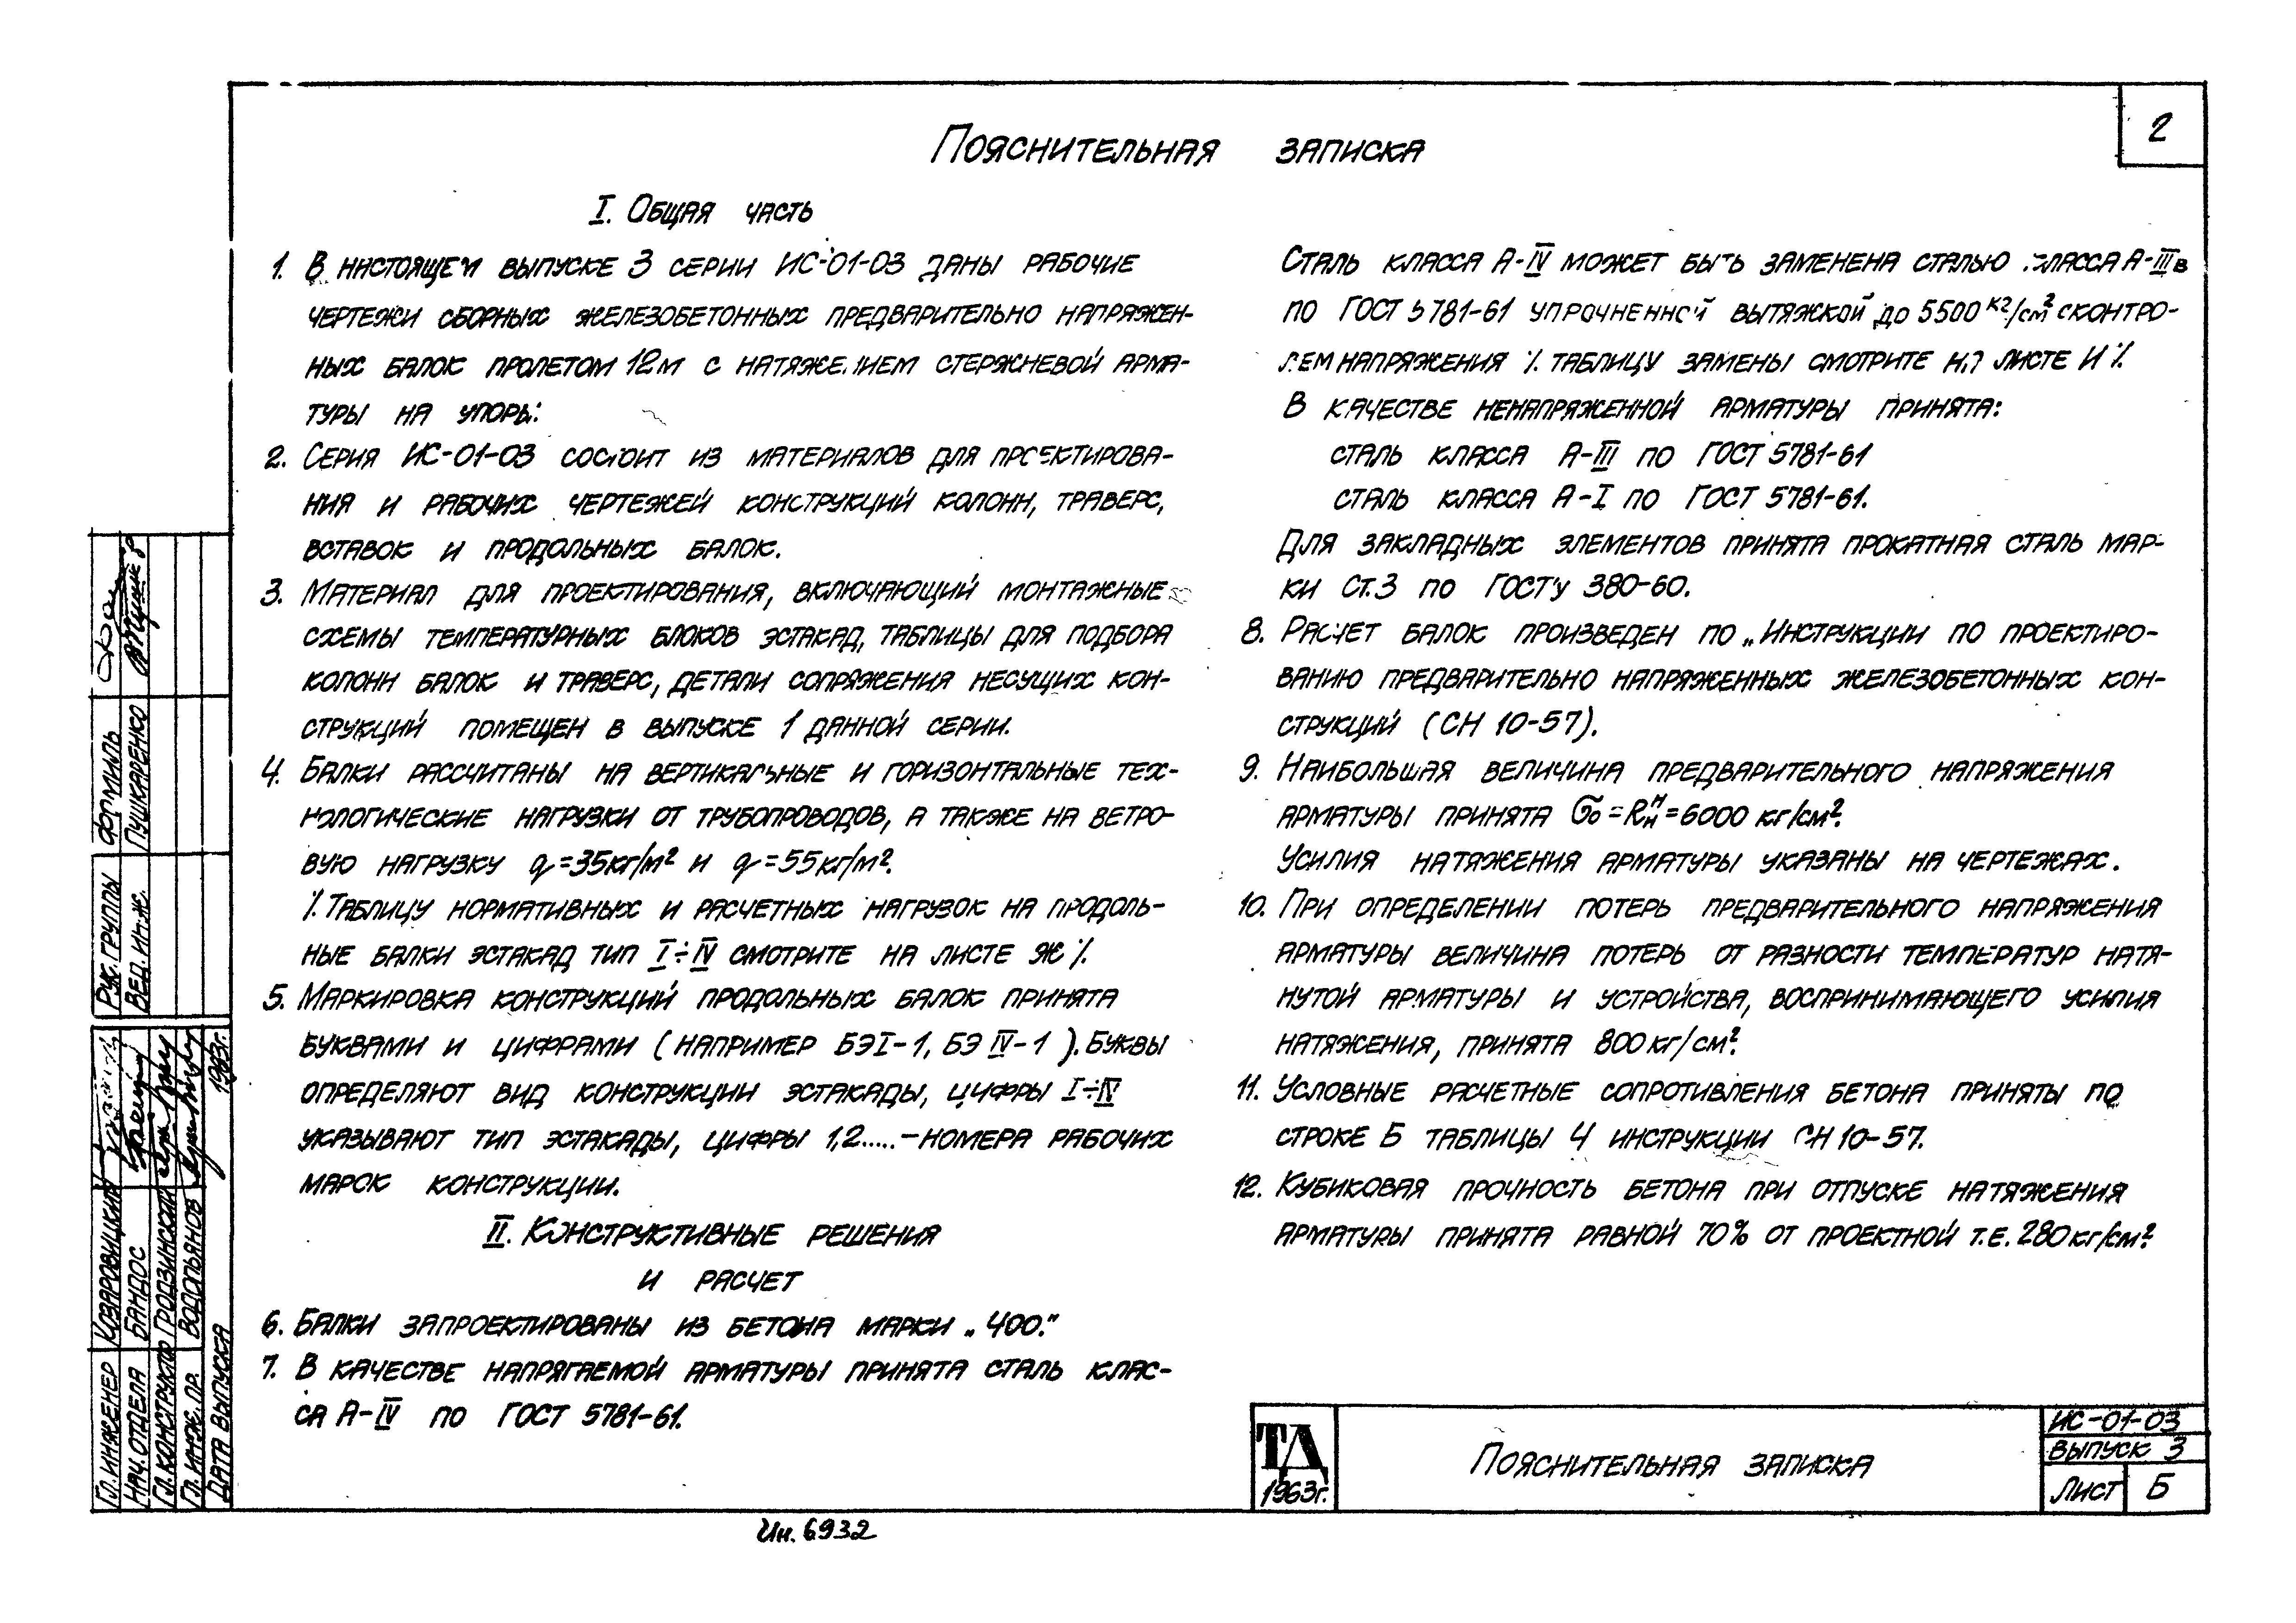 2
Пояснительная записка
I. Общая часть
1. В настоящем выпуске 3 серии ИС-01-03 даны рабочие
чертежи сборных железобетонных предварительно напряжен-
ных балок пролетом 12м с натяжением стержневой арма-
туры на упоры.
2. Серия ИС-01-03 состоит из материалов для проектирова-
ния и рабочих чертежей конструкций колонн, траверс,
вставок и продольных балок.
3. Материал для проектирования, включающий монтажные
схемы температурных блоков эстакад, таблицы для подбора
колонн балок и траверс, детали сопряжения несущих кон-
струкций помещен в выпуске 1 данной серии.
4. Балки рассчитаны на вертикальные и горизонтальные тех-
нологические нагрузки от трубопроводов, а также на ветро-
вую нагрузку q=35кг/м² и q=55кг/м².
/. Таблицу нормативных и расчетных нагрузок на продоль-
ные балки эстакад тип I÷IV смотрите на листе Ж /.
5. Маркировка конструкций продольных балок принята
буквами и цифрами (например БЭI-1, БЭ IV-1). Буквы
определяют вид конструкции эстакады, цифры I÷IV
указывают тип эстакады, цифры 1,2.....-номера рабочих
марок конструкции.
II. Конструктивные решения
и расчет
6. Балки запроектированы из бетона марки „400."
7. В качестве напрягаемой арматуры принята сталь клас-
са А-IV по ГОСТ 5781-61.
Сталь класса А-IV может быть заменена сталью класса А-IIIв
по ГОСТ 5781-61 упрочненной вытяжкой до 5500 кг/см² с контро-
лем напряжения /. Таблицу замены смотрите на листе И /.
В качестве ненапряженной арматуры принята:
сталь класса А-III по ГОСТ 5781-61
сталь класса А-I по ГОСТ 5781-61.
Для закладных элементов принята прокатная сталь мар-
ки Ст.3 по ГОСТу 380-60.
8. Расчет балок произведен по „Инструкции по проектиро-
ванию предварительно напряженных железобетонных кон-
струкций (СН 10-57).
9. Наибольшая величина предварительного напряжения
арматуры принята σ₀=Rнᴴ=6000 кг/см².
Усилия натяжения арматуры указаны на чертежах.
10. При определении потерь предварительного напряжения
арматуры величина потерь от разности температур натя-
нутой арматуры и устройства, воспринимающего усилия
натяжения, принята 800кг/см².
11. Условные расчетные сопротивления бетона приняты по
строке Б таблицы 4 инструкции СН 10-57.
12. Кубиковая прочность бетона при отпуске натяжения
арматуры принята равной 70% от проектной т.е. 280кг/см².
Рук. группы Формиль
Вед. инж. Пушкаренко
Гл. инженер Казаровицкий
Нач. отдела Бандос
Гл. конструктор Гродзинский
Гл. инж. пр. Водопьянов
Дата выпуска 1963г.
ТД
1963г.
Пояснительная записка
ИС-01-03
Выпуск 3
Лист Б
Ин. 6932